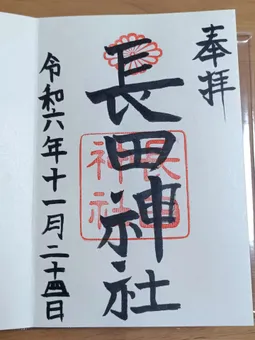 奉拝
長田神社
長田
神社
令和六年十一月二十四日